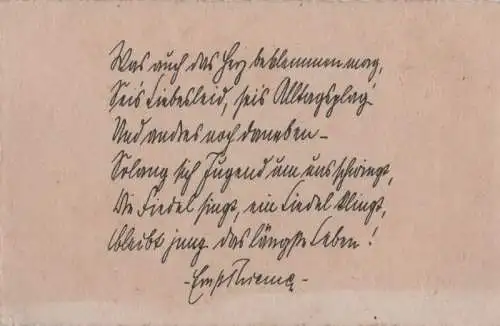 Was auch das Herz beklemmen mag,
Sei's Liebesleid, sei's Alltagsplag'
Und andres noch daneben –
Solang sich Jugend um uns schwingt,
Die Fiedel singt, ein Liedel klingt,
Bleibt jung das längste Leben!
– Ernst Thieme –